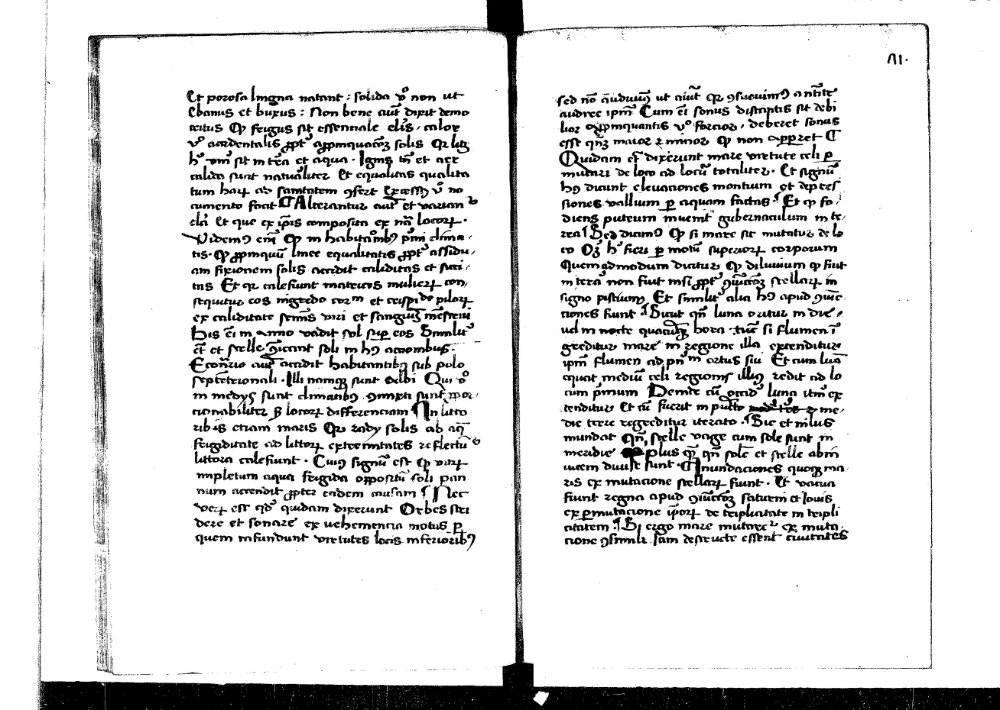 Et porosa lingna natant : solida vo non ut
Ebanus et buxus : Non bene aut dixit demo
critus qp frigus sit essenciale elis . calor
vo accidentalis ppt appinquacoz solis Qr lig
hoc vm sit in tra et aqua . Ignis tn et aer
calida sunt naturaliter Et equalitas qualita
tum harum ad sanitatem ofert Excessus vo no
cumentum facit Alterantur aut et varian
Et que ex ipis composita ex na locorum .
Videmus eni qp in habitantibus pmi clima
tis . qp ppinquum linee equalitatis ppt assidu
am fixionem solis accidit caliditas et sici
tas Et qr calefiunt matrices mulierum con
sequitur eos nigredo corum et crispido pilorum
ex caliditate seminis viri et sanguinis menstrui
His ei in anno vadit sol super eos Similiter
et stelle iuncant soli in hys accionibus .
Econrio aut accidit habitantibus sub polo
septemtrionali . Illi namque sunt albi Qui vo
in medys sunt climatibus omixti sunt ppor
cionabiliter secundum locorum differenciam In litto
ribus etiam maris Qr rady solis ab aque
frigiditate ad littorum extremitates reflectuntur
littora calefiunt . Cuius signum est qp vas
impletum aqua frigida oppositum soli pan
num accendit propter eandem causam Nec
verum est quod quidam dixerunt Orbes stri
dere et sonare ex vehemencia motus per
quem infundunt virtutes locis inferioribus
VI.
sed non audimus ut aiunt qr osuevimus a ntitate
audire ipm Cum ei sonus distantis sit debi
lior appinquantis vo forcior . deberet sonus
esse qnqz maior et minor qp non apparet
Quidam eni dixerunt mare virtute celi per
mutari de loco ad locum totaliter . Et signum
huius dicunt elevaciones montium et depres
siones vallium per aquam factas Et qp fo
diens puteum invenit gubernaculum in ter
rea Sed dicimus qp si mare sit mutatum de lo
co Oz hoc fieri per motum superiorum corporum
Quemadmodum dicitur qp diluvium qp fuit
in terra non fuit nisi ppt iunctoz stellarum in
signo piscium Et similiter alia huius apud iunc
tiones fiunt Sicut qn luna oritur in die
vel in nocte quacunqz hora . tunc si flumen in
greditur mare in regione illa extenditur
ipm flumen ad pnm ortus sui Et cum luna
equat medium celi regionis illius redit ad lo
cum primum Deinde cum occidit luna iterum ex
tenditur Et cum fuerit in puncto me
die terre regreditur iterato . Sic et nilus
inundat qn stelle vage cum sole sunt in
meridie plus qn sole et stelle abin
vicem divise sunt Inundaciones quoqz ma
ris ex mutacione stellarum fiunt . Et vacua
fiunt regna apud iunctoz saturni et Iovis
ex permutacione ipsorum de triplicitate in tripli
citatem Si ergo mare mutaretur ex muta
cione osimili iam destructe essent civitates